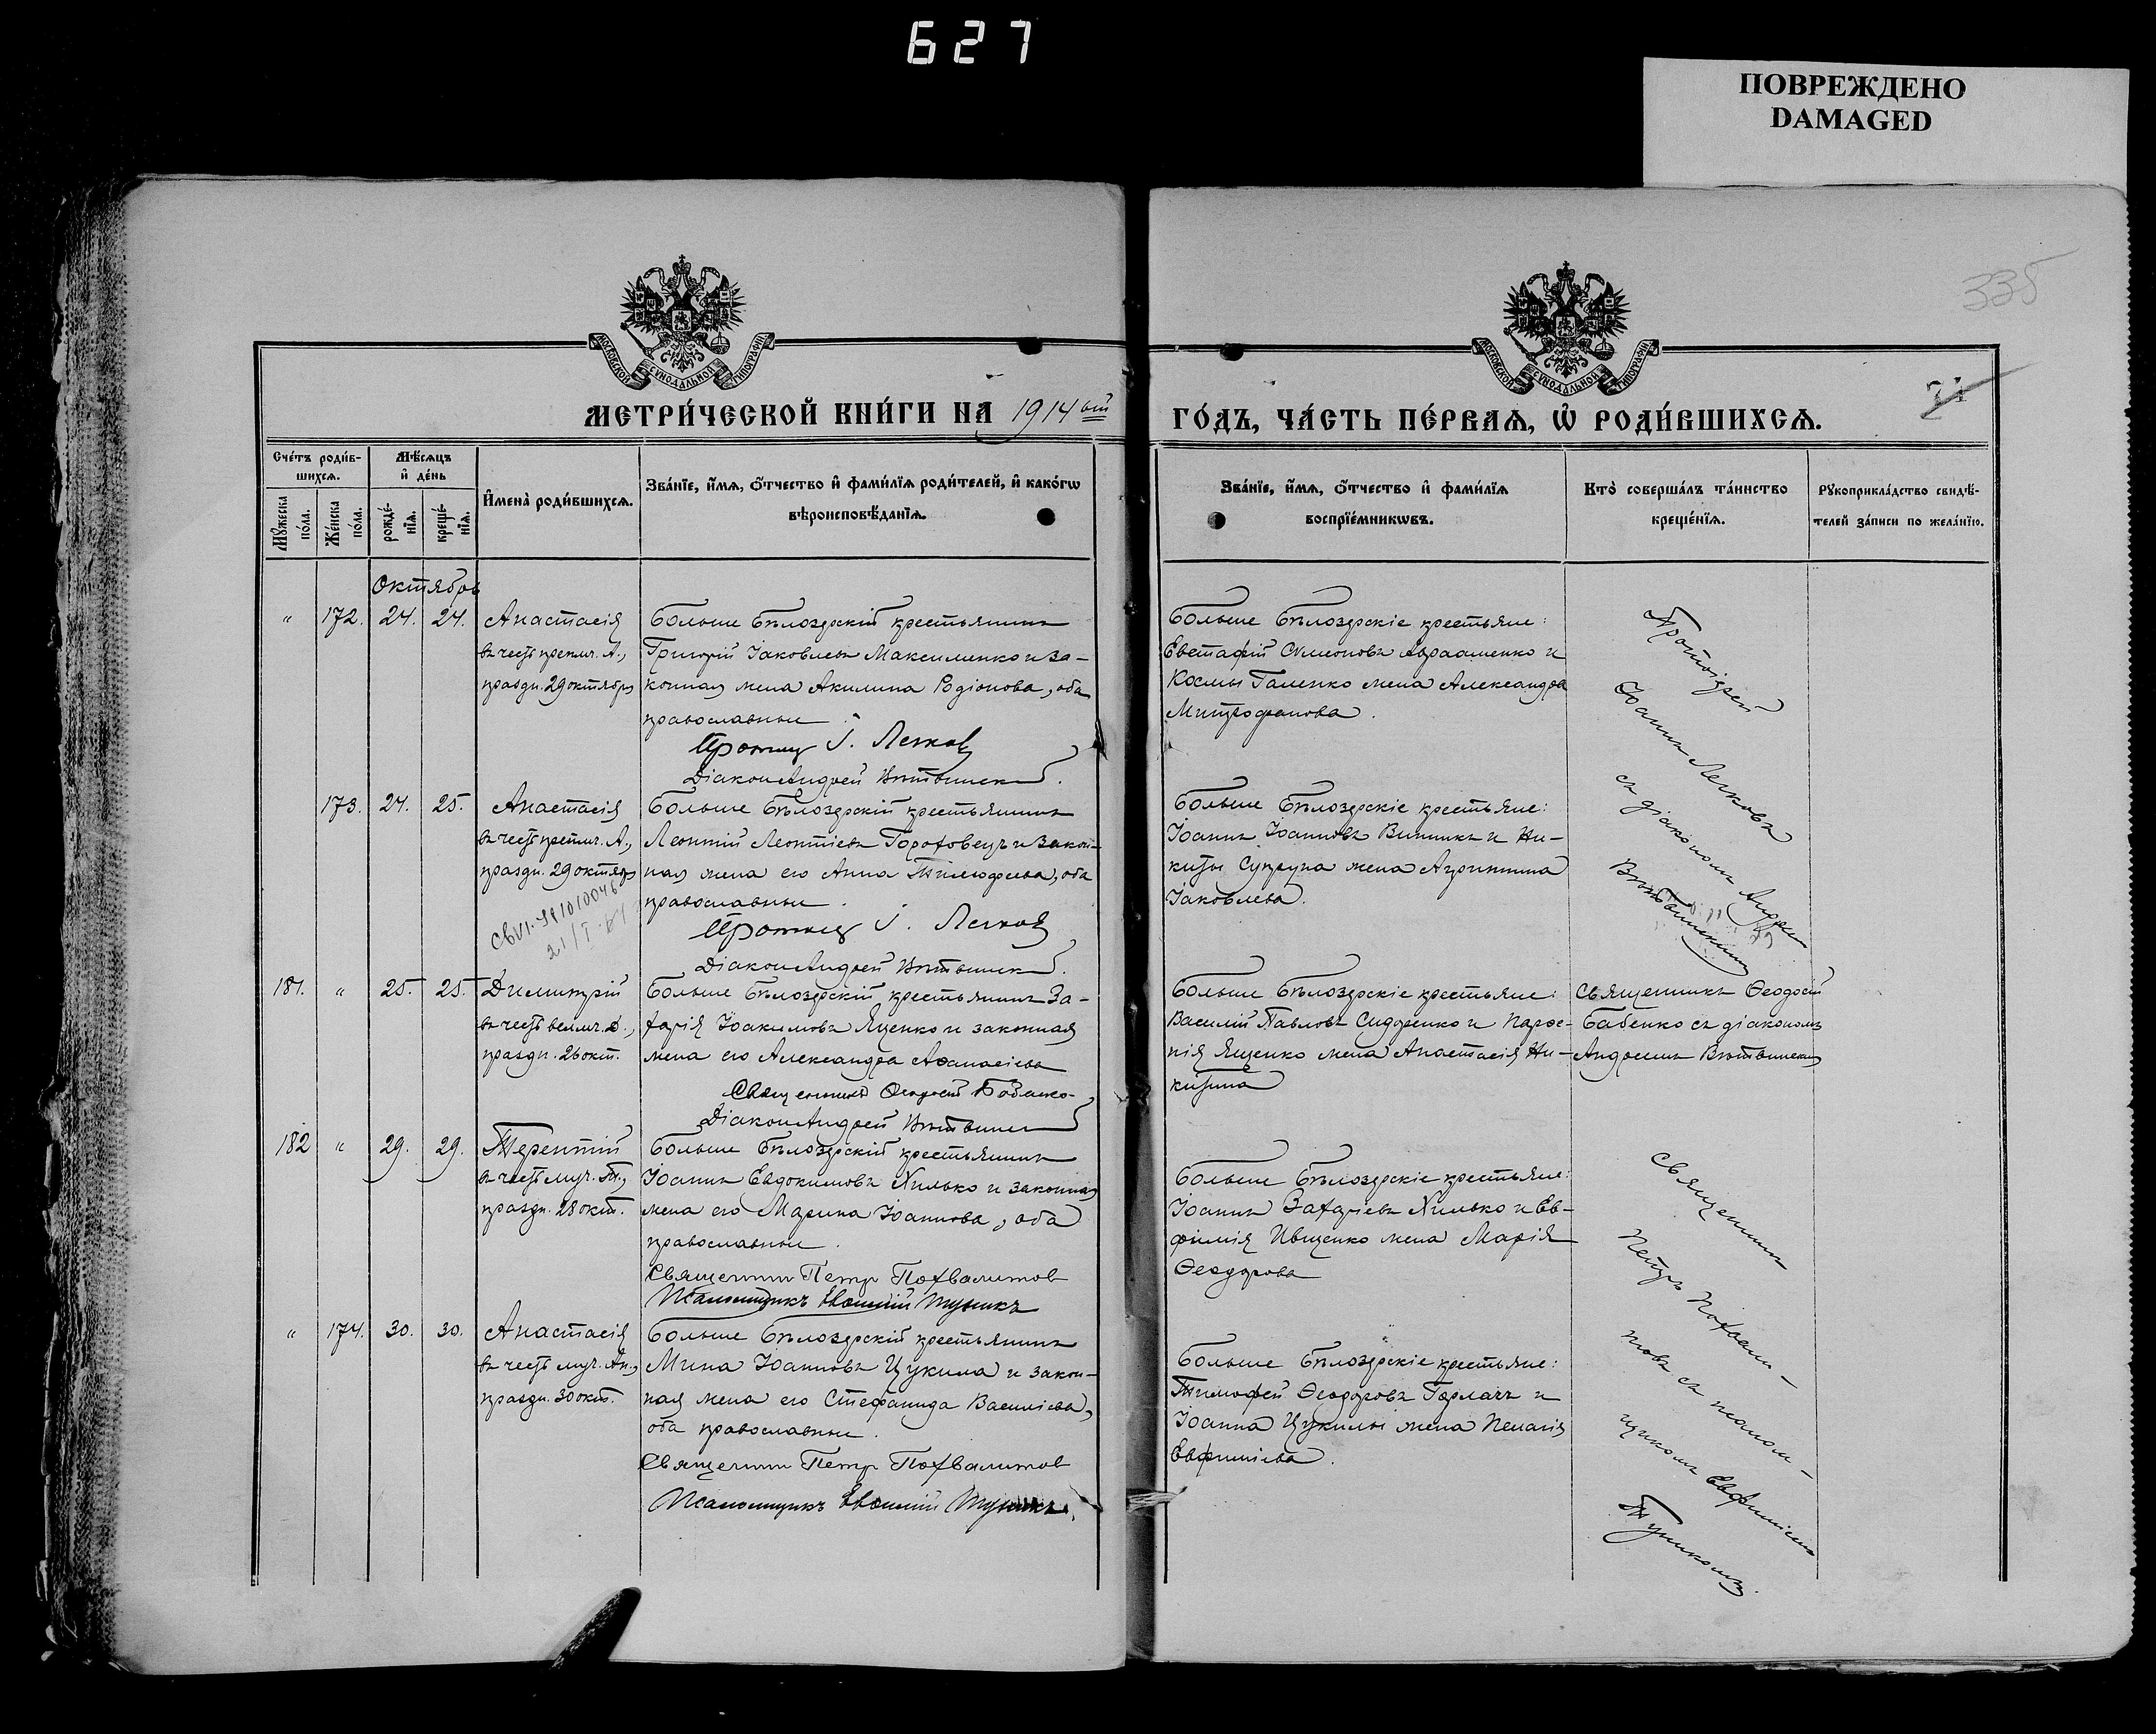 627
ПОВРЕЖДЕНО
DAMAGED
335
МОСКОВСКОЙ СѴНОДАЛЬНОЙ ТИПОГРАФІИ
МОСКОВСКОЙ СѴНОДАЛЬНОЙ ТИПОГРАФІИ
МЕТРИ́ЧЕСКОЙ КНИ́ГИ НА 1914 ый
ГО́ДЪ, ЧА́СТЬ ПЕ́РВАѦ, Ѡ҆ РОДИ́ВШИХСѦ.
71
Сче́тъ роди́в-
шихсѧ.
Мꙋ́жеска по́ла.
Же́нска по́ла.
Мѣ́сѧцъ
и҆ де́нь
рожде́-
нїѧ.
креще́-
нїѧ.
И҆мена̀ роди́вшихсѧ.
Зва́нїе, и҆́мѧ, ѻ҆́тчество и҆ фами́лїѧ роди́телей, и҆ како́гѡ
вѣроисповѣ́данїѧ.
Зва́нїе, и҆́мѧ, ѻ҆́тчество и҆ фами́лїѧ
воспрїе́мникѡвъ.
Кто̀ соверша́лъ та́инство
креще́нїѧ.
Рꙋкоприкла́дство свидѣ́-
телей за́писи по жела́нїю.
Октябрь
" 172. 24. 24. Анастасія
въ честь препмч. А.,
праздн. 29 октября
Больше Бѣлозерскій крестьянинъ
Григорій Іаковлевъ Максименко и за-
конная жена Акилина Родіонова, оба
православные.
Протоіер. І. Легковъ
Діаконъ Андрей Витвинскій.
Больше Бѣлозерскіе крестьяне:
Евстафій Сѵмеоновъ Авраменко и
Космы Галенко жена Александра
Митрофанова.
Протоіерей
Іоаннъ Легковъ
съ діакономъ Андреем
Витвинскимъ
173. 24. 25. Анастасія
въ честь препмч. А.,
праздн. 29 октября
Больше Бѣлозерскій крестьянинъ
Леонтій Леонтіевъ Гороховецъ и закон-
ная жена его Анна Тимофеева, оба
православные.
Протоіер. І. Легковъ
Діаконъ Андрей Витвинскій.
Больше Бѣлозерскіе крестьяне:
Іоаннъ Іоанновъ Винникъ и Ни-
киты Супруна жена Агриппина
Іаковлева.
181. " 25. 25. Димитрій
въ честь велмч. Д.,
праздн. 26 окт.
Больше Бѣлозерскій крестьянинъ За-
харія Іоакимовъ Яценко и законная
жена его Александра Аѳанасіева
Священникъ Ѳеодосій Бабенко
Діаконъ Андрей Витвинскій
Больше Бѣлозерскіе крестьяне:
Василій Павловъ Сидоренко и
Яценко жена Анастасія Ни-
китина
Священникъ Ѳеодосій
Бабенко съ діакономъ
Андреемъ Витвинскимъ
182 " 29. 29. Терентій
въ честь муч. Т.,
праздн. 28 окт.
Больше Бѣлозерскій крестьянинъ
Іоаннъ Евдокимовъ Хилько и законная
жена его Марина Іоаннова, оба
православные.
Священникъ Петръ Похвалитов
Псаломщикъ Евѳимій Туникъ
Больше Бѣлозерскіе крестьяне:
Іоаннъ Захаріевъ Хилько и Ев-
фимія Ивщенко жена Марія
Ѳеодорова
Священникъ
Петръ Похвали-
товъ съ псалом-
щикомъ Евфиміемъ
Туникомъ.
" 174. 30. 30. Анастасія
въ честь муч. Ан.,
праздн. 30 окт.
Больше Бѣлозерскій крестьянинъ
Мина Іоанновъ Цукила и закон-
ная жена его Стефанида Василіева,
оба православные.
Священникъ Петръ Похвалитов
Псаломщикъ Евѳимій Туникъ.
Больше Бѣлозерскіе крестьяне:
Тимофей Ѳеодоровъ Горлачъ и
Іоанна Цукилы жена Пелагія
Евфиміева.